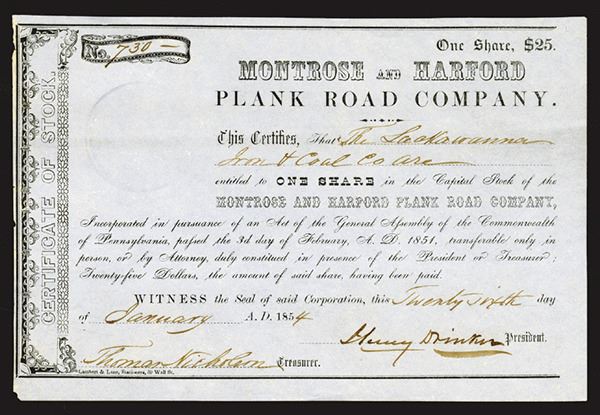 No. 730 —
One Share, $25.
MONTROSE AND HARFORD
PLANK ROAD COMPANY.
This Certifies, That The Lackawanna
Iron & Coal Co are
entitled to ONE SHARE in the Capital Stock of the
MONTROSE AND HARFORD PLANK ROAD COMPANY,
Incorporated in pursuance of an Act of the General Aſsembly of the Commonwealth
of Pennsylvania, paſsed the 3d day of February, A. D. 1851, transferable only in
person, or by Attorney, duly constituted in presence of the President or Treasurer;
Twenty-five Dollars, the amount of said share, having been paid.
WITNESS the Seal of said Corporation, this Twenty Sixth day
of January A. D. 1854
Henry Drinker President.
Thomas Nicholson Treasurer.
Lambert & Lane, Stationers, 69 Wall St.
CERTIFICATE OF STOCK.